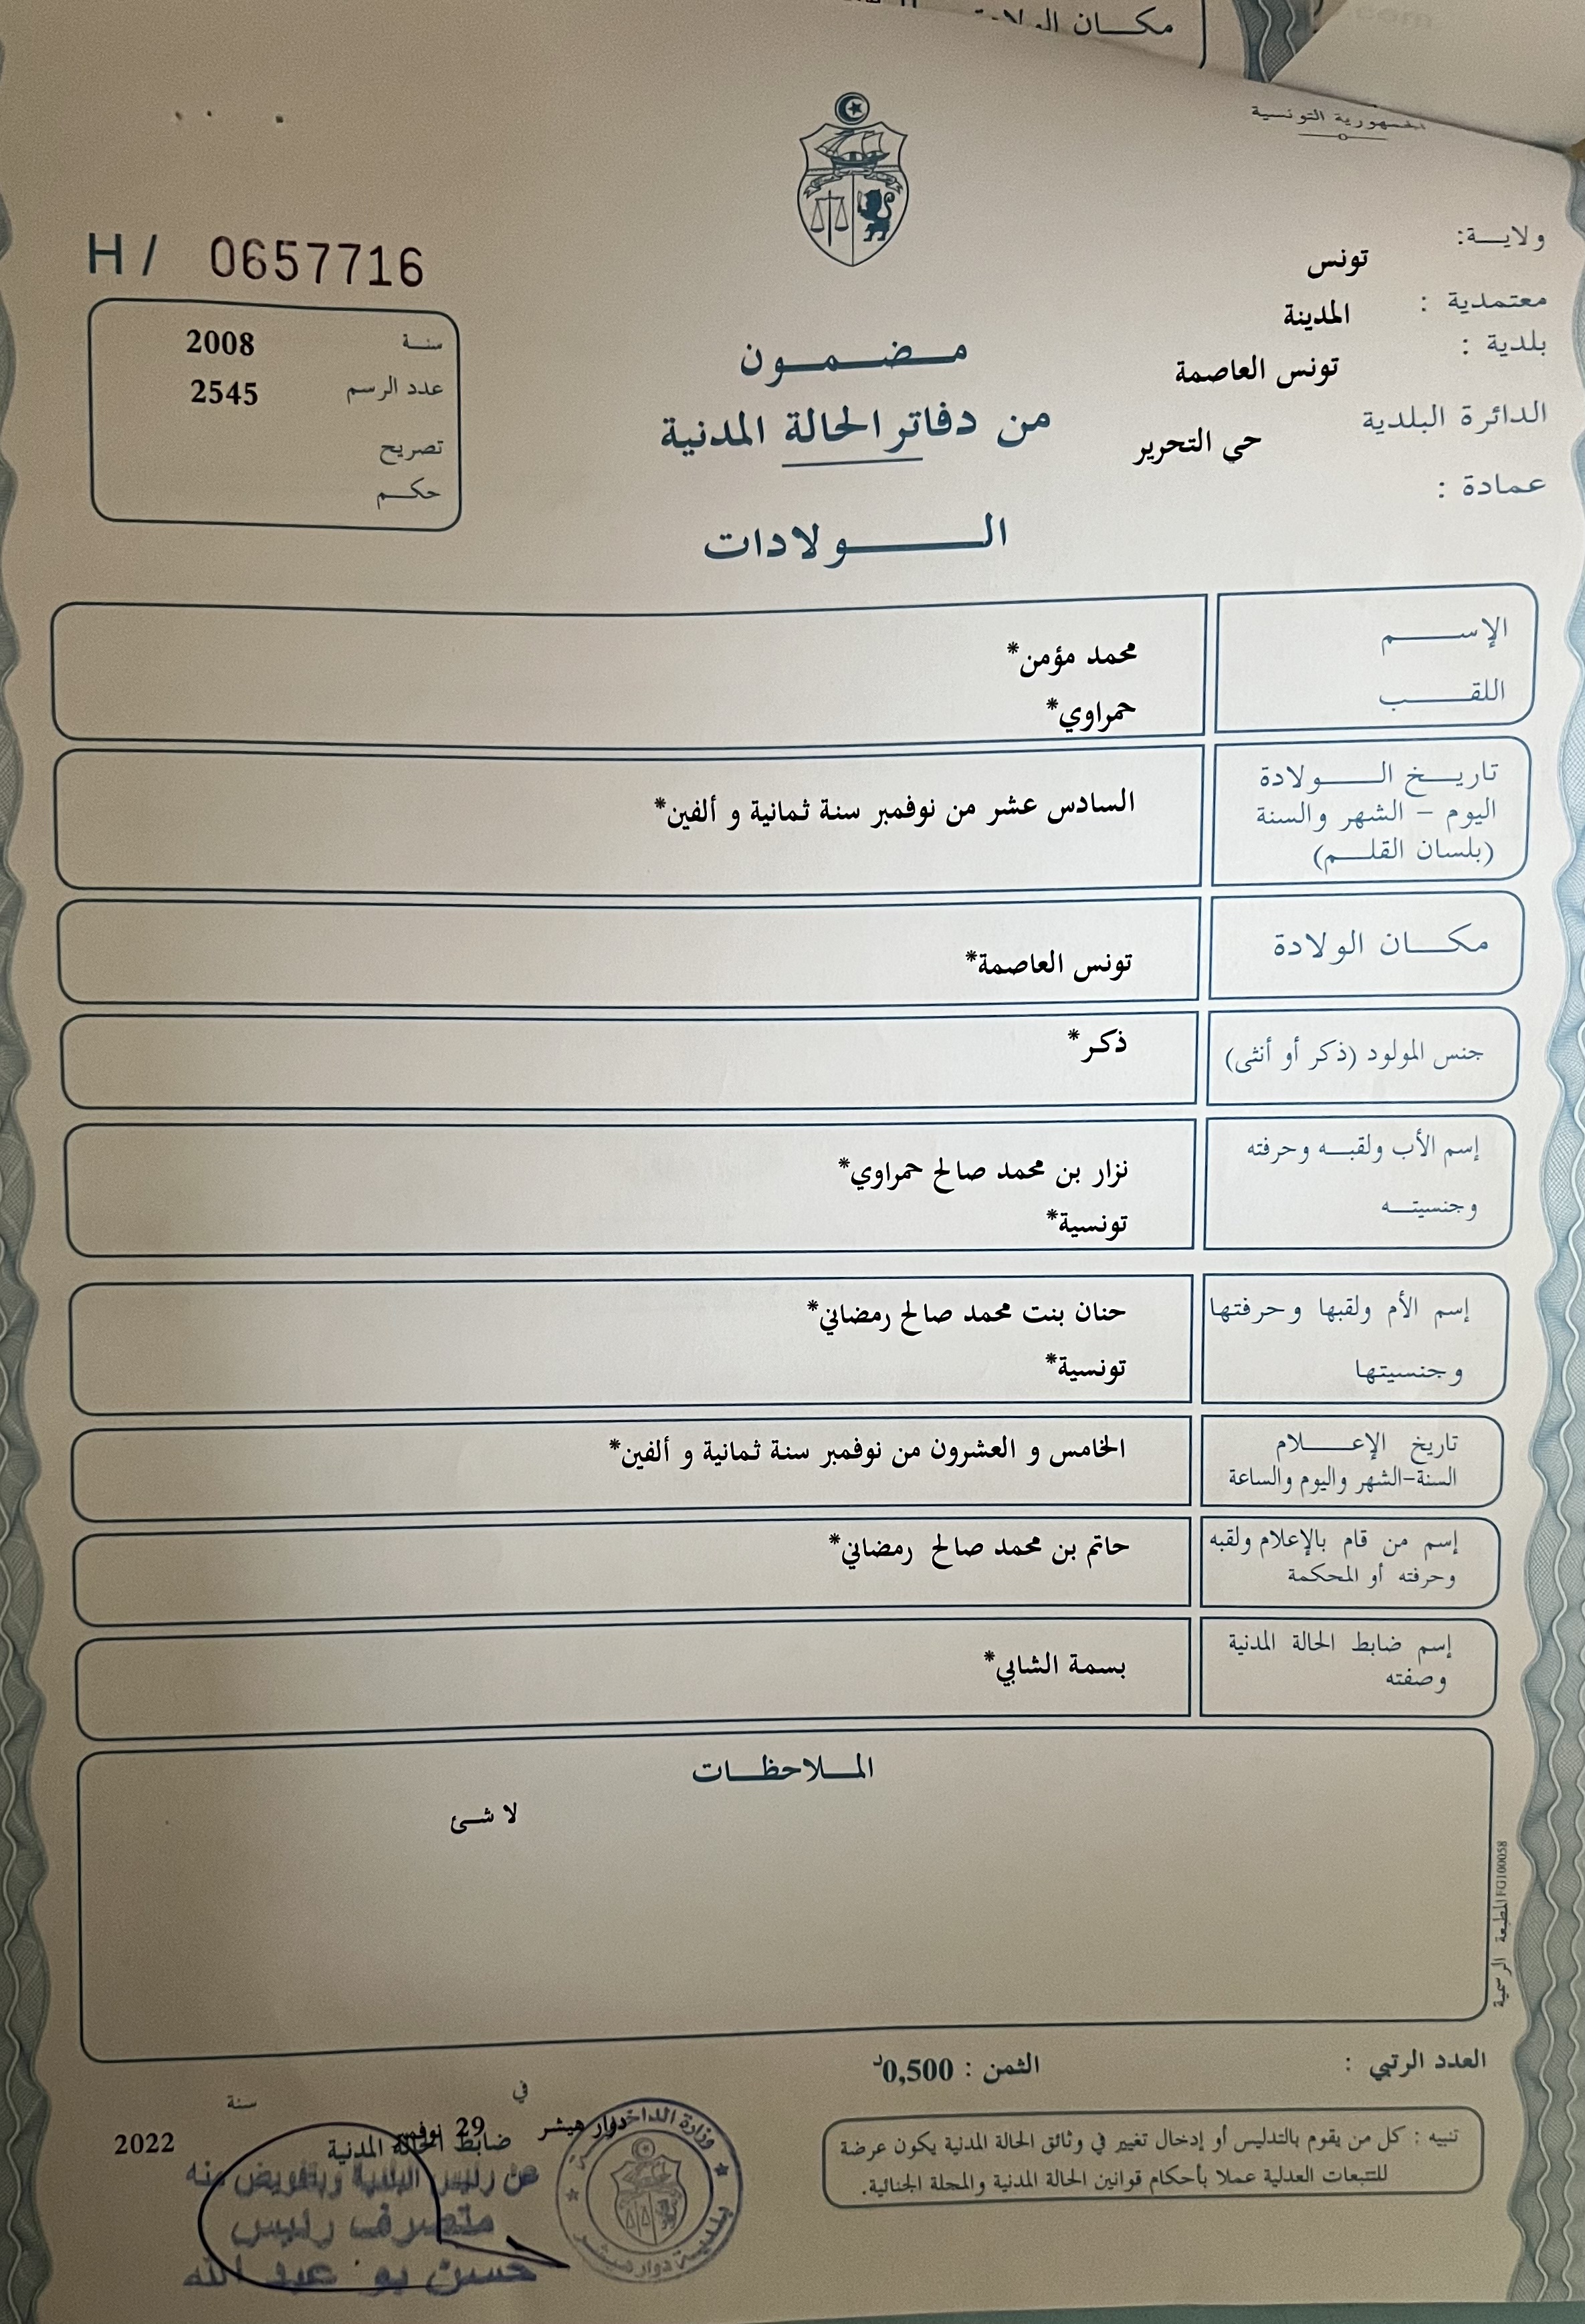 مكان الولادة
الجمهورية التونسية
ولاية:
تونس
معتمدية :
المدينة
بلدية :
تونس العاصمة
الدائرة البلدية
حي التحرير
عمادة :
H / 0657716
سنة 2008
عدد الرسم 2545
تصريح
حكم
مضمون
من دفاتر الحالة المدنية
الولادات
الإسم
محمد مؤمن*
اللقب
حمراوي*
تاريخ الولادة
اليوم - الشهر والسنة
(بلسان القلم)
السادس عشر من نوفمبر سنة ثمانية و ألفين*
مكان الولادة
تونس العاصمة*
جنس المولود (ذكر أو أنثى)
ذكر*
إسم الأب ولقبه وحرفته
وجنسيته
نزار بن محمد صالح حمراوي*
تونسية*
إسم الأم ولقبها وحرفتها
وجنسيتها
حنان بنت محمد صالح رمضاني*
تونسية*
تاريخ الإعلام
السنة-الشهر واليوم والساعة
الخامس و العشرون من نوفمبر سنة ثمانية و ألفين*
إسم من قام بالإعلام ولقبه
وحرفته أو المحكمة
حاتم بن محمد صالح رمضاني*
إسم ضابط الحالة المدنية
وصفته
بسمة الشابي*
الملاحظات
لا شئ
المطبعة الرسمية FG100058
العدد الرتبي :
الثمن : 0,500د
تنبيه : كل من يقوم بالتدليس أو إدخال تغيير في وثائق الحالة المدنية يكون عرضة
للتتبعات العدلية عملا بأحكام قوانين الحالة المدنية والمجلة الجنائية.
في
سنة
دوار هيشر
29 نوفمبر
2022
ضابط الحالة المدنية
عن رئيس البلدية وبتفويض منه
متصرف رئيس
حسن بو عبد الله
وزارة الداخلية
بلدية دوار هيشر